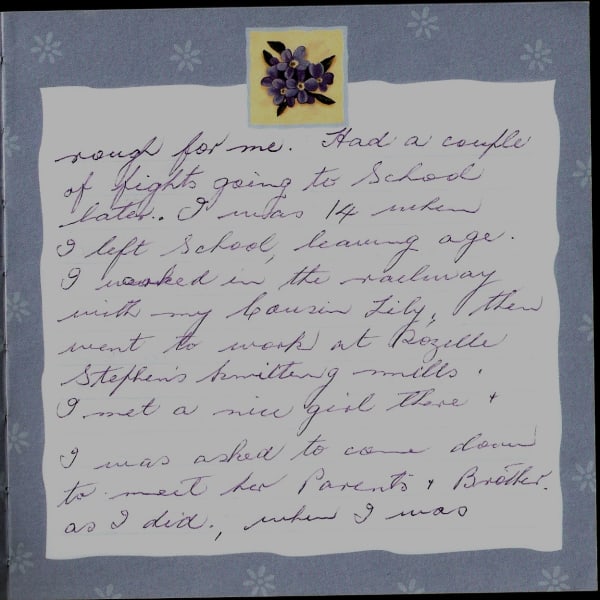 rough for me. Had a couple
of fights going to School
later.. I was 14 when
I left School, leaving age.
I worked in the railway
with my Cousin Lily, then
went to work at Rozelle
Stephen's knitting mills.
I met a nice girl there +
I was asked to come down
to meet her Parents + Brother.
as I did., when I was